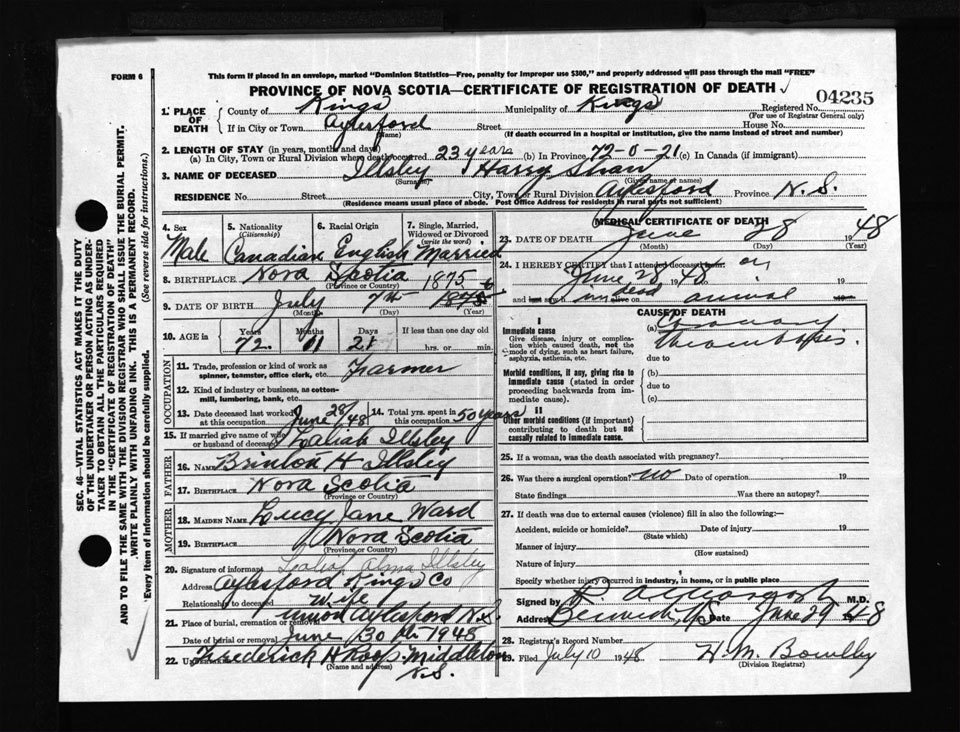 FORM 6
This form if placed in an envelope, marked "Dominion Statistics—Free, penalty for improper use $300," and properly addressed will pass through the mail "FREE"
PROVINCE OF NOVA SCOTIA—CERTIFICATE OF REGISTRATION OF DEATH
04235
1. PLACE OF DEATH
County of Kings Municipality of Kings Registered No.
(For use of Registrar General only)
If in City or Town Aylesford Street House No.
(Name) (If death occurred in a hospital or institution, give the name instead of street and number)
2. LENGTH OF STAY (in years, months and days)
(a) In City, Town or Rural Division where death occurred 23 years (b) In Province 72-0-21 (c) In Canada (if immigrant)
3. NAME OF DECEASED Illsley Harry Shaw
(Surname) (Given name or names)
RESIDENCE No. Street City, Town or Rural Division Aylesford Province N.S.
(Residence means usual place of abode. Post Office Address for residents in rural parts not sufficient)
4. Sex Male
5. Nationality (Citizenship) Canadian
6. Racial Origin English
7. Single, Married, Widowed or Divorced (write the word) Married
8. BIRTHPLACE Nova Scotia
(Province or Country) 1875
9. DATE OF BIRTH July 7th
(Month) (Day) (Year)
10. AGE in Years 72 Months 11 Days 21 If less than one day old
hrs. or min.
OCCUPATION
11. Trade, profession or kind of work as spinner, teamster, office clerk, etc. Farmer
12. Kind of industry or business, as cotton-mill, lumbering, bank, etc.
13. Date deceased last worked at this occupation June 28/48
14. Total yrs. spent in this occupation 50 years
15. If married give name of wife or husband of deceased Laliah Illsley
FATHER
16. NAME Brinton H Illsley
17. BIRTHPLACE Nova Scotia
(Province or Country)
MOTHER
18. MAIDEN NAME Lucy Jane Ward
19. BIRTHPLACE Nova Scotia
(Province or Country)
20. Signature of informant Laliah Alma Illsley
Address Aylesford Kings Co
Relationship to deceased Wife
21. Place of burial, cremation or removal Union Aylesford N.S.
Date of burial or removal June 30th 1948
22. UNDERTAKER Frederick H Roop Middleton
(Name and address) N.S.
MEDICAL CERTIFICATE OF DEATH
23. DATE OF DEATH June 28 1948
(Month) (Day) (Year)
24. I HEREBY CERTIFY that I attended deceased from:
June 28 48 on
and last saw h im alive on dead arrival 19
CAUSE OF DEATH
I
Immediate cause
Give disease, injury or complication which caused death, not the mode of dying, such as heart failure, asphyxia, asthenia, etc.
(a) Coronary
thrombosis.
due to
Morbid conditions, if any, giving rise to immediate cause (stated in order proceeding backwards from immediate cause).
(b)
due to
(c)
II
Other morbid conditions (if important) contributing to death but not causally related to immediate cause.
25. If a woman, was the death associated with pregnancy?
26. Was there a surgical operation? no Date of operation 19
State findings Was there an autopsy?
27. If death was due to external causes (violence) fill in also the following:—
Accident, suicide or homicide? Date of injury 19
(State which)
Manner of injury
(How sustained)
Nature of injury
Specify whether injury occurred in industry, in home, or in public place
Signed by M.D.
Address Berwick, NS Date June 29 48
28. Registrar's Record Number
29. Filed July 10 1948 H. M. Bowlby
(Division Registrar)
SEC. 46—VITAL STATISTICS ACT MAKES IT THE DUTY
OF THE UNDERTAKER OR PERSON ACTING AS UNDER-
TAKER TO OBTAIN ALL THE PARTICULARS REQUIRED
IN THE "CERTIFICATE OF REGISTRATION OF DEATH"
AND TO FILE THE SAME WITH THE DIVISION REGISTRAR WHO SHALL ISSUE THE BURIAL PERMIT.
WRITE PLAINLY WITH UNFADING INK. THIS IS A PERMANENT RECORD.
Every item of information should be carefully supplied. (See reverse side for instructions.)